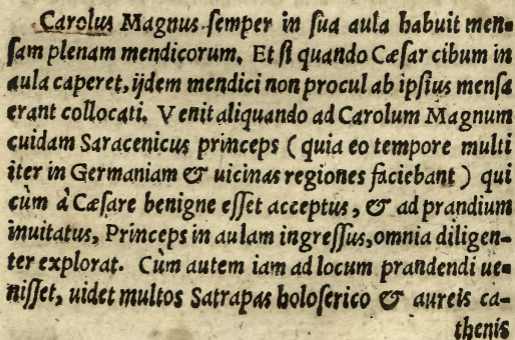 Carolus Magnus semper in sua aula habuit men-
sam plenam mendicorum. Et si quando Cæsar cibum in
aula caperet, ijdem mendici non procul ab ipsius mensa
erant collocati. Venit aliquando ad Carolum Magnum
cuidam Saracenicus princeps ( quia eo tempore multi
iter in Germaniam & uicinas regiones faciebant ) qui
cùm à Cæsare benigne esset acceptus, & ad prandium
inuitatus, Princeps in aulam ingressus, omnia diligen-
ter explorat. Cùm autem iam ad locum prandendi ue-
nisset, uidet multos Satrapas holoserico & aureis ca-
thenis